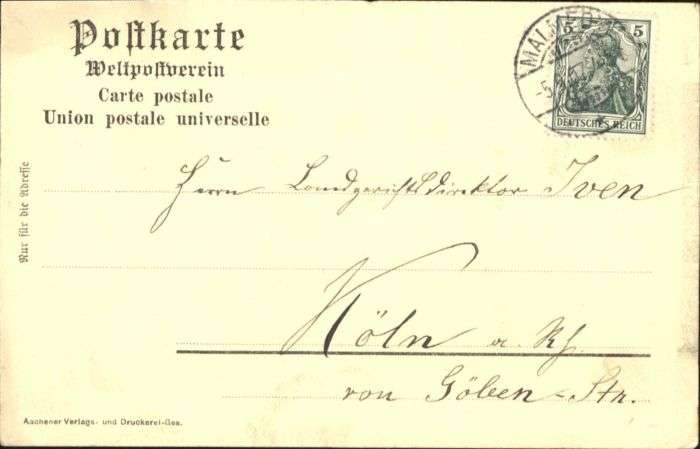 Postkarte
Weltpostverein
Carte postale
Union postale universelle
MALMED
5 5
DEUTSCHES REICH
Nur für die Adresse
Herrn Landgerichtsdirektor Iven
Köln a. Rh.
von Göben-Str.
Aachener Verlags- und Druckerei-Ges.